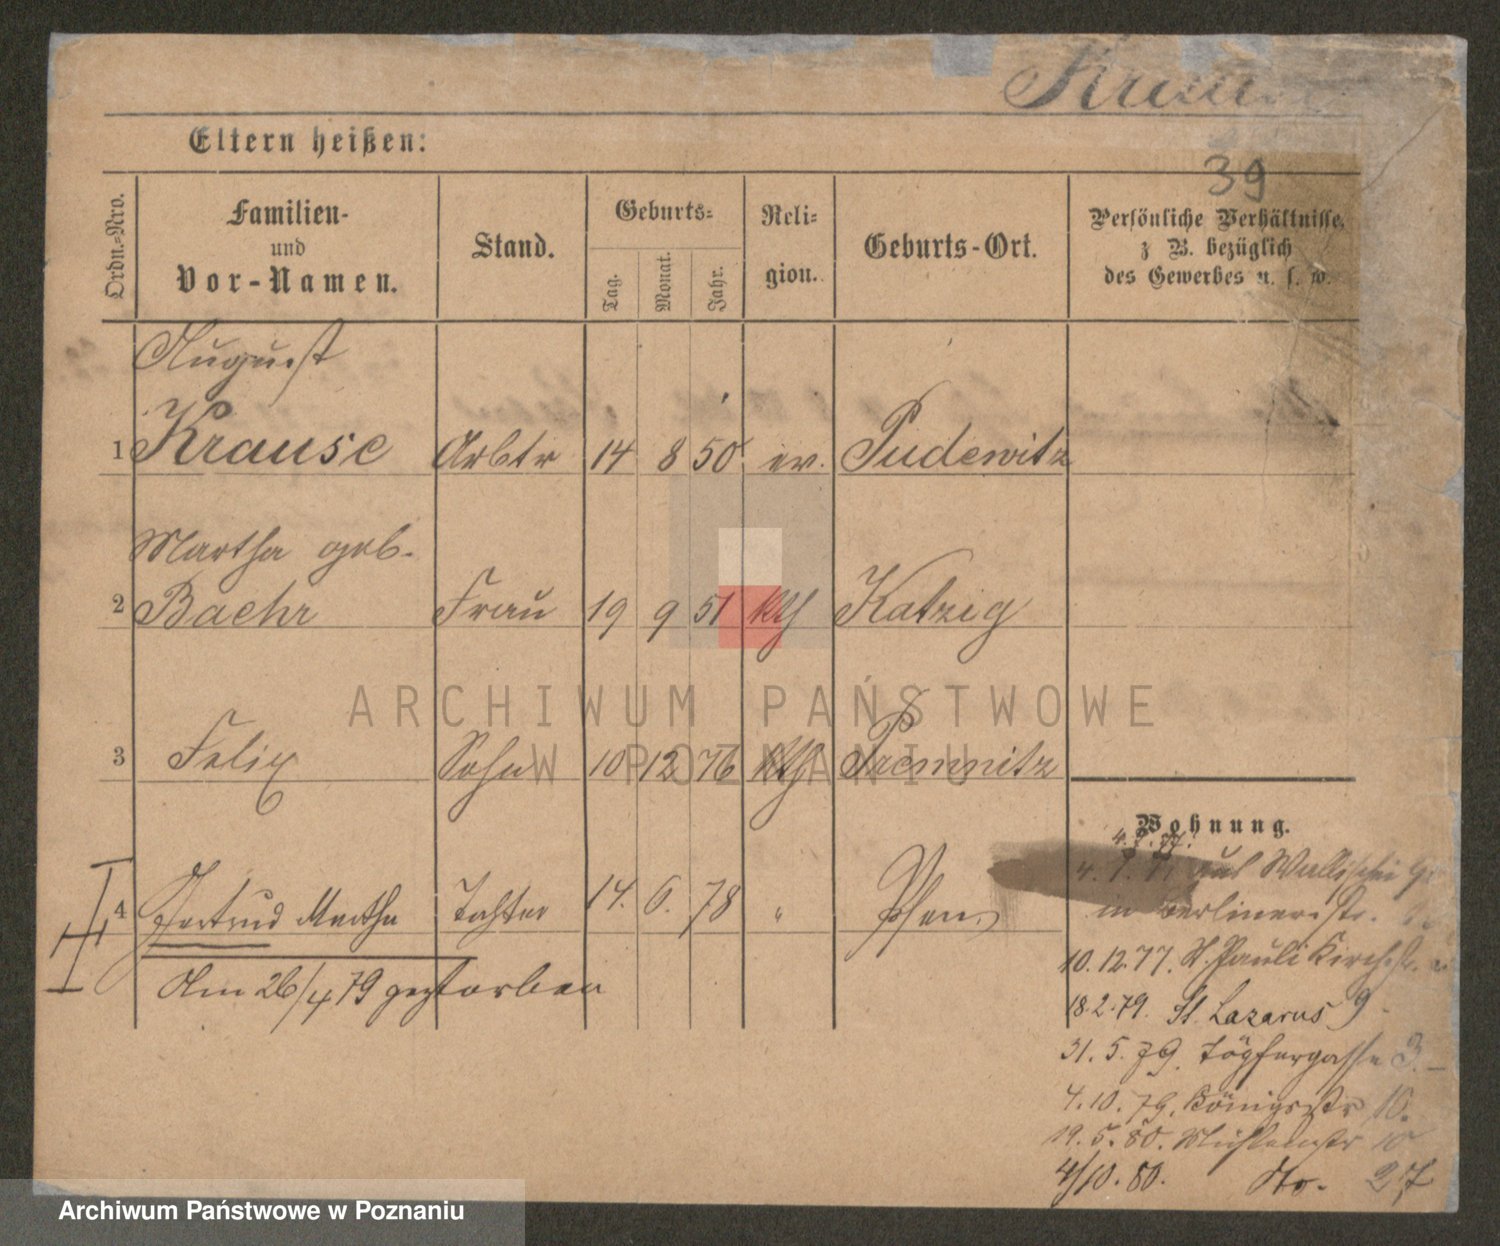 Krause
39
Eltern heißen:
Ordn.-Nro. Familien- und Vor-Namen. Stand. Geburts- Tag. Monat. Jahr. Religion. Geburts-Ort. Persönliche Verhältnisse, z B. bezüglich des Gewerbes u. s. w.
August
1 Krause Arbtr 14 8 50 ev. Pudewitz
Martha geb.
2 Baehr Frau 19 9 51 kth Katzig
3 Felix Sohn 10 12 76 kth Premnitz
Wohnung.
4 Gertrud Martha Tochter 14. 6. 78 " Posen
Am 26/4 79 gestorben
in Berlinerstr.
10.12.77. St. Pauli Kirchstr.
18.2.79. St. Lazarus 9
31.5.79. Töpfergasse 3.
4.10.79. Königsstr 10.
19.5.80. Mühlenstr 10
4/10.80. Do. 27
ARCHIWUM PAŃSTWOWE
W POZNANIU
Archiwum Państwowe w Poznaniu